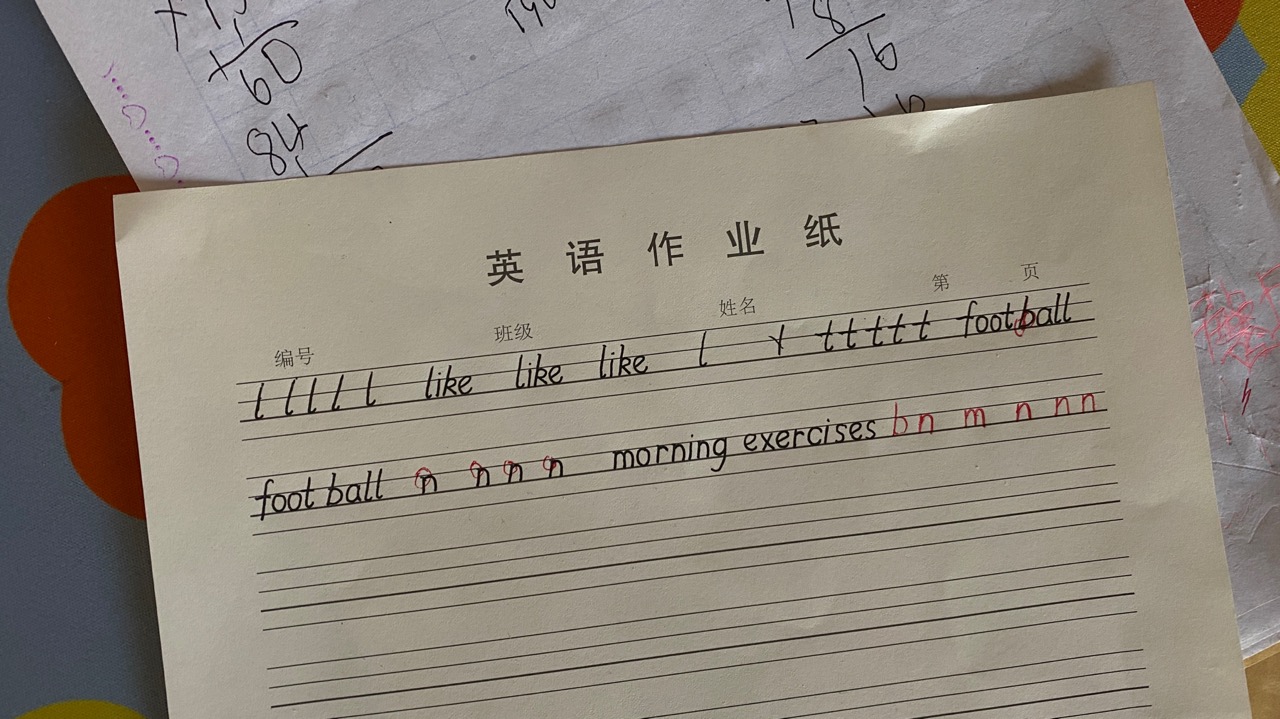 60
84
8
16
英语作业纸
编号 班级 姓名 第 页
l l l l l like like like l t t t t t football
foot ball n n n n morning exercises b n m n n n